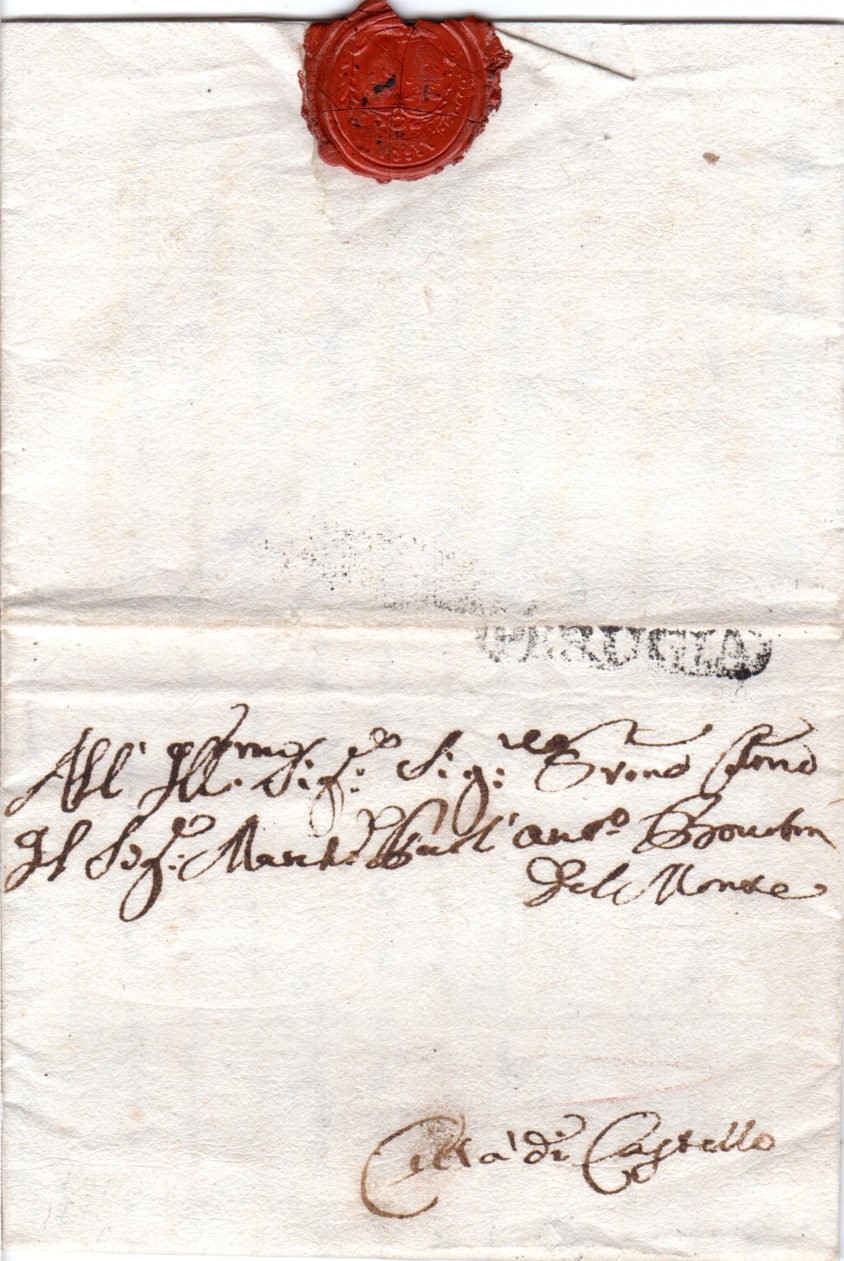 PERUGIA
All' Ill.mo Sig.re Sig.re Prone Colmo
Il Sig.re March. Ant.o Bourbon
Del Monte
Città di Castello